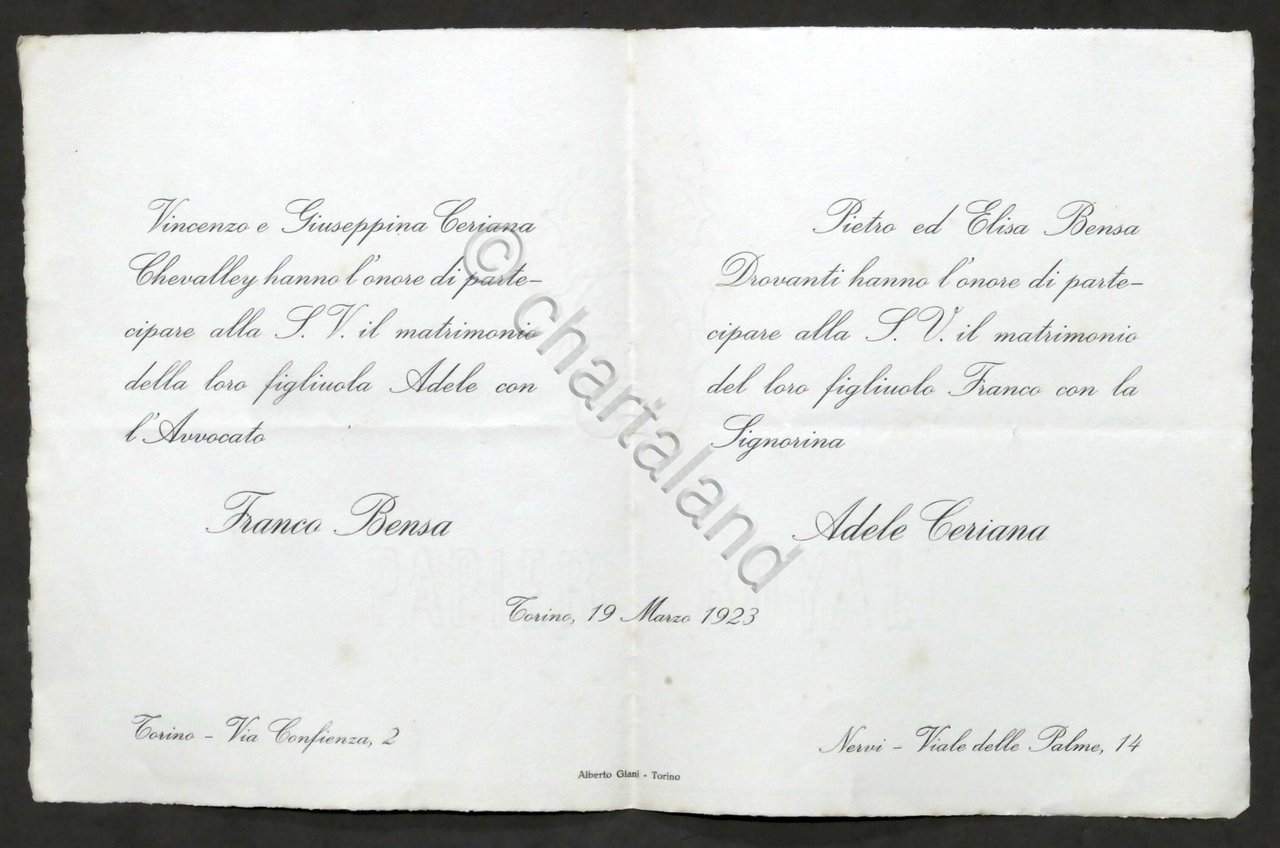 Vincenzo e Giuseppina Ceriana
Chevalley hanno l'onore di parte-
cipare alla S. V. il matrimonio
della loro figliuola Adele con
l'Avvocato
Franco Bensa
Pietro ed Elisa Bensa
Drovanti hanno l'onore di parte-
cipare alla S. V. il matrimonio
del loro figliuolo Franco con la
Signorina
Adele Ceriana
Torino, 19 Marzo 1923
Torino - Via Confienza, 2
Nervi - Viale delle Palme, 14
Alberto Giani - Torino
© chartaland